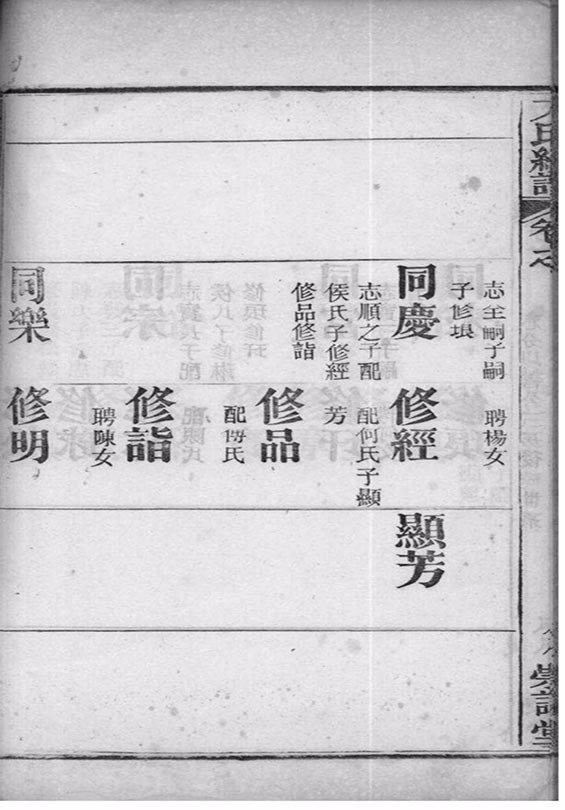 志全嗣子嗣
子修琅
同慶
志順之子配
侯氏子修經
修品修詣
同樂
聘楊女
修經
配何氏子顯
芳
修品
配傅氏
修詣
聘陳女
修明
顯芳